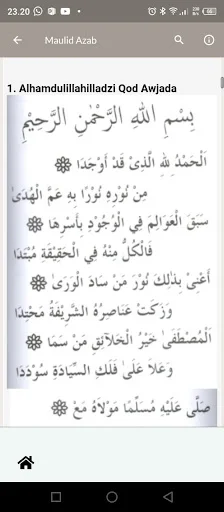 23.20
Maulid Azab
1. Alhamdulillahilladzi Qod Awjada
بِسْمِ اللهِ الرَّحْمٰنِ الرَّحِيْمِ
اَلْحَمْدُ لِلّٰهِ الَّذِىْ قَدْ أَوْجَدَا ۞
مِنْ نُوْرِهِ نُوْرًا بِهِ عَمَّ الْهُدَىٰ
سَبَقَ الْعَوَالِمَ فِي الْوُجُوْدِ بِأَسْرِهَا ۞
فَالْكُلُّ مِنْهُ فِي الْحَقِيْقَةِ مُبْتَدَا
أَعْنِىْ بِذٰلِكَ نُوْرَ مَنْ سَادَ الْوَرَىٰ ۞
وَزَكَتْ عَنَاصِرُهُ الشَّرِيْفَةُ مَحْتِدَا
اَلْمُصْطَفَىٰ خَيْرُ الْخَلَآئِقِ مَنْ سَمَا ۞
وَعَلَا عَلَىٰ فَلَكِ السِّيَادَةِ سُوْدَدَا
صَلَّى عَلَيْهِ مُسَلِّمًا مَوْلَاهُ مَعْ ۞